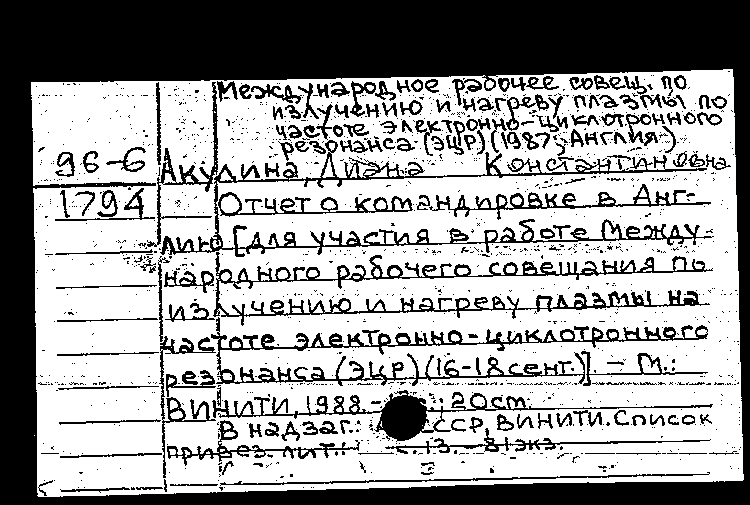 Международное рабочее совещ. по
излучению и нагреву плазмы по
частоте электронно-циклотронного
резонанса (ЭЦР) (1987; Англия)
96-6 Акулина, Диана Константиновна
1794 Отчет о командировке в Анг-
лию [для участия в работе Между-
народного рабочего совещания по
излучению и нагреву плазмы на
частоте электронно-циклотронного
резонанса (ЭЦР) (16-18 сент.)] - М.:
ВИНИТИ, 1988. - ; 20 см.
В надзаг.: СССР, ВИНИТИ. Список
привез. лит.: с. 13. - 81 экз.